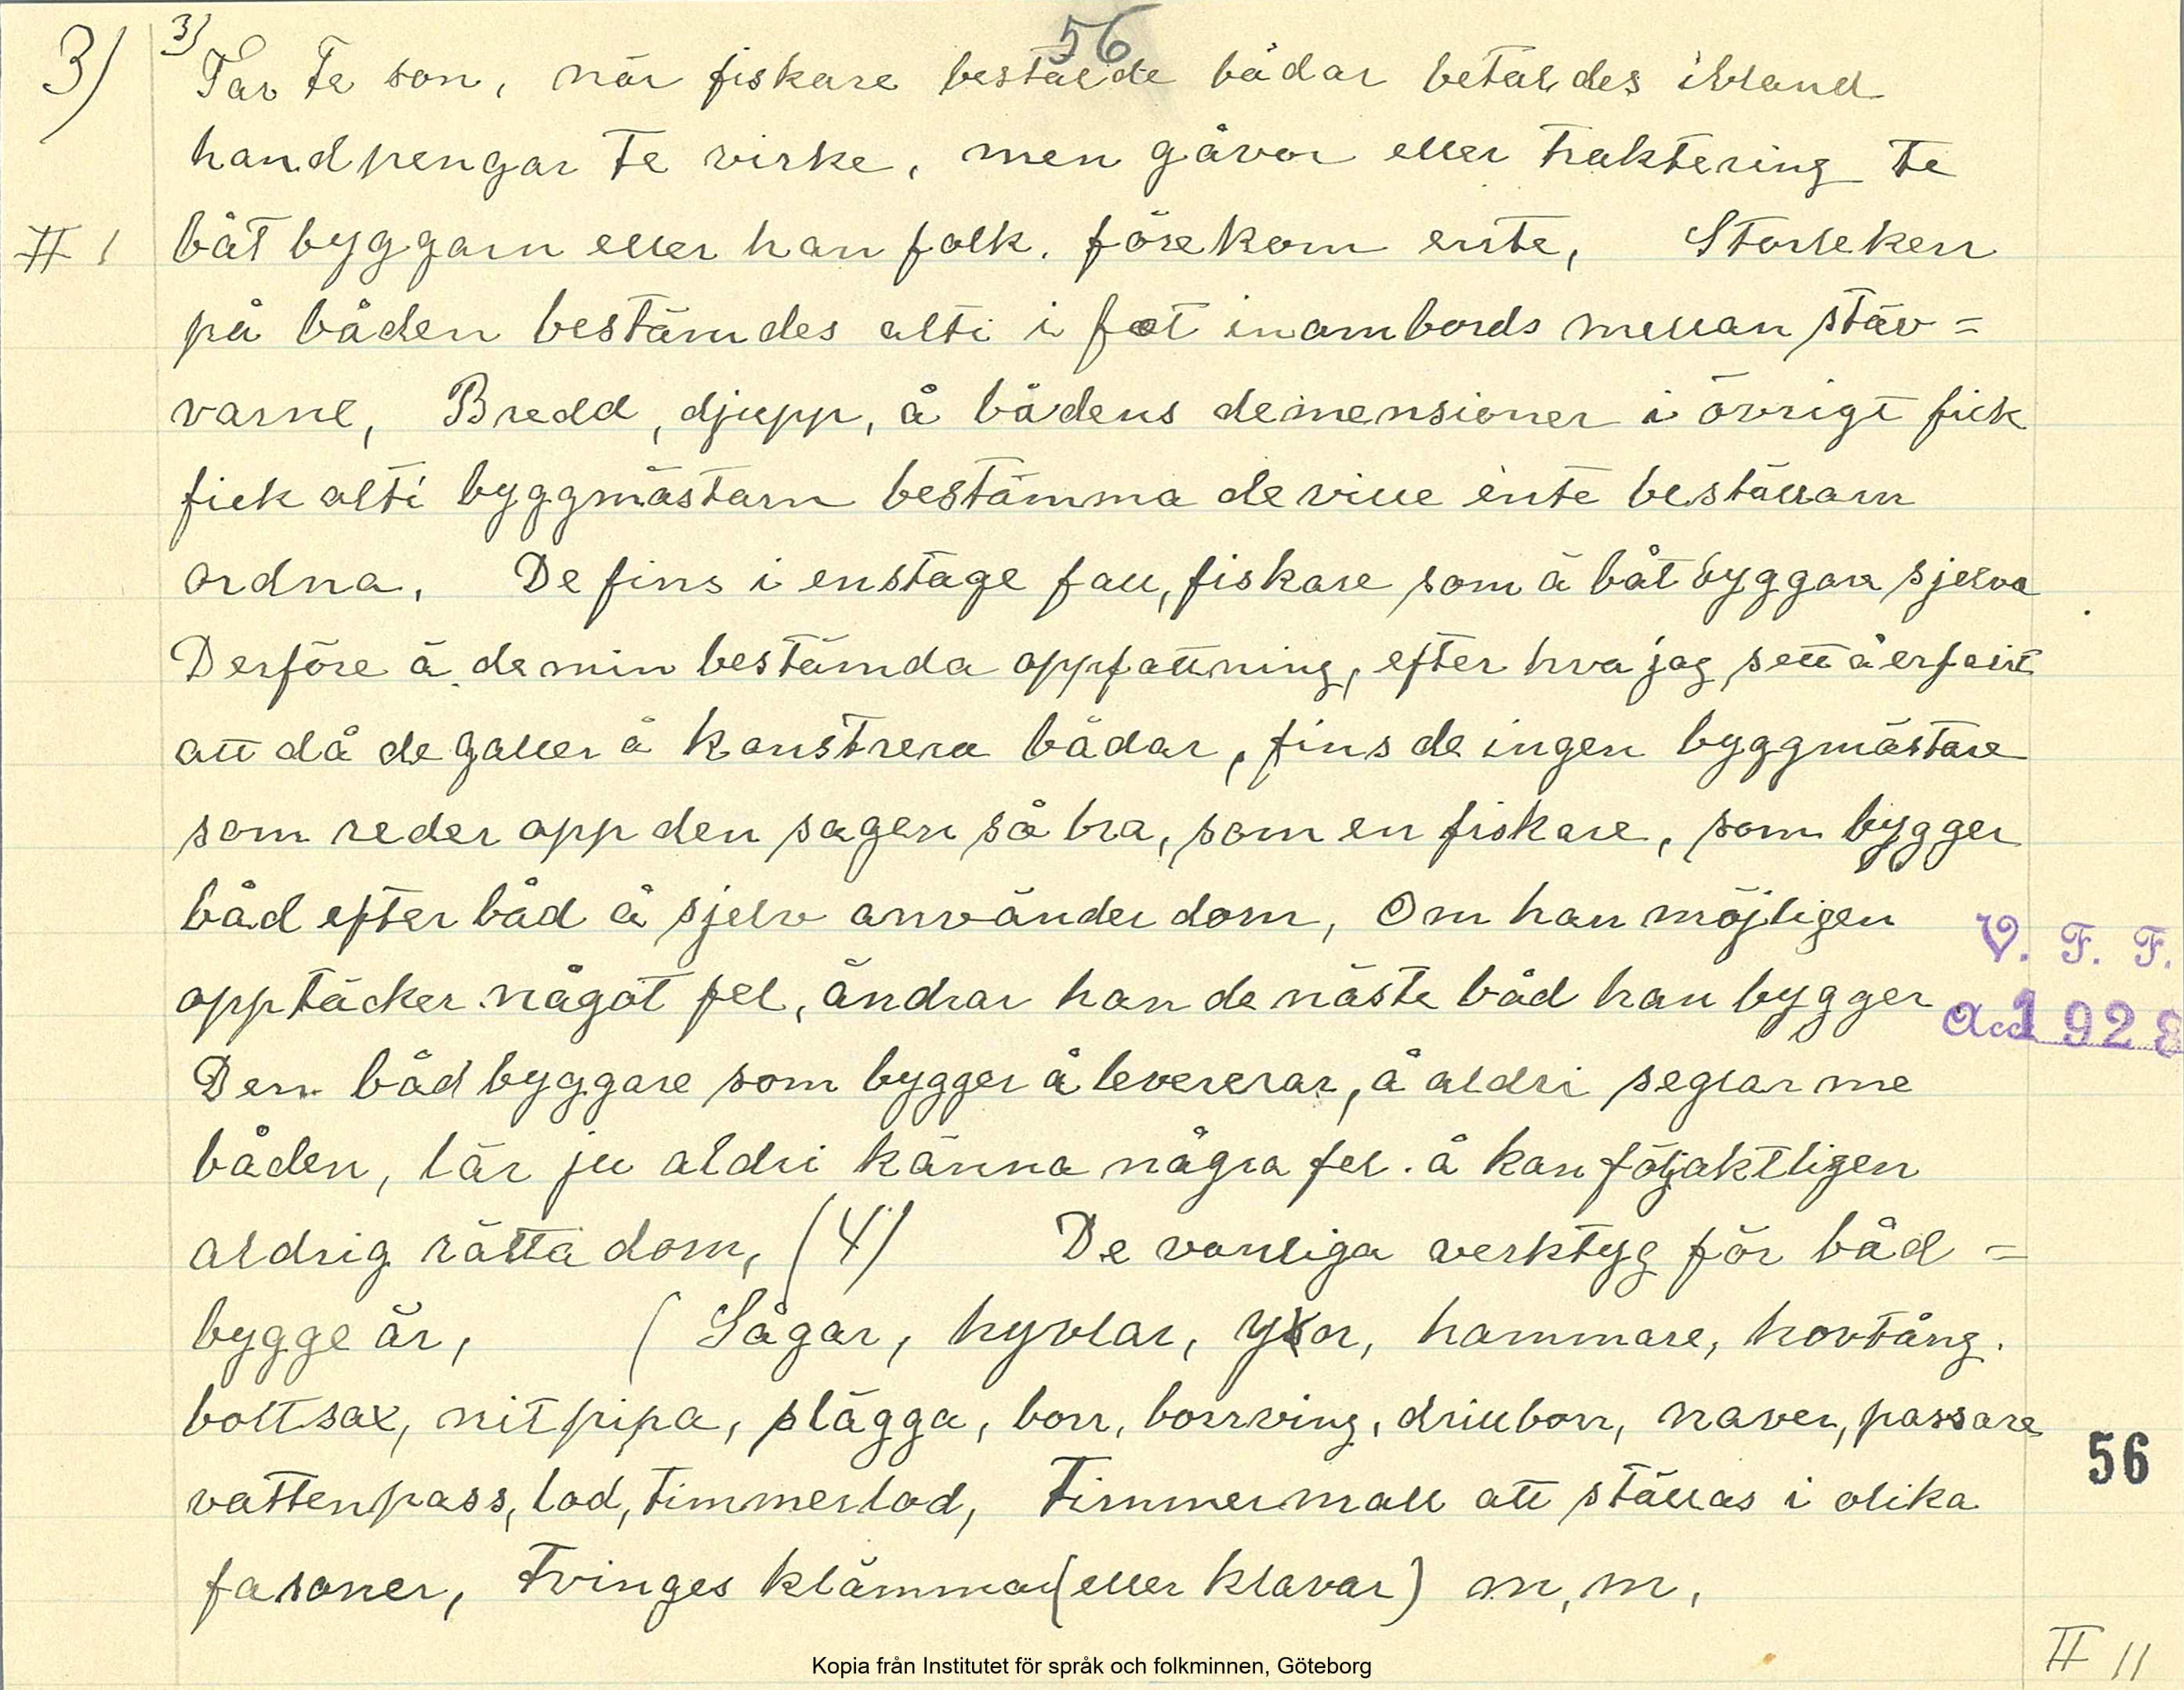 56
3) 3) Far te son, när fiskare bestälde bådar betaldes ibland
handpengar te virke, men gåvor eller traktering te
II 1 båtbyggarn eller han folk. förekom ente, Storleken
på båden bestämdes alti i fot inombords mellan stäv=
varne, Bredd, djupp, å bådens demensioner i övrigt fick
fick alti byggmästarn bestämma de ville ente beställarn
ordna, De fins i enstage fall, fiskare som ä båtbyggara sjelva
Derföre ä de min bestämda oppfattning, efter hva jag sett å erfarit
att då de galler å konstrera bådar, fins de ingen byggmästare
som reder opp den sagen så bra, som en fiskare, som bygger
båd efter båd å sjelv använder dom, Om han möjligen
opptäcker något fel, ändrar han de näste båd han bygger
V. F. F.
Acc 1928
Den båd byggare som bygger å levererar, å aldri seglar me
båden, lär ju aldri känna några fel. å kan följaktligen
aldrig rätta dom, (4) De vanliga verktyg för båd =
bygge är, ( Sågar, hyvlar, yxor, hammare, hovtång.
boltsax, nitpipa, slägga, borr, borrving, drillborr, naver, passare
56
vattenpass, lod, timmerlod, Timmermall att ställas i olika
fasoner, Tvinges klämmar (eller klavar) m, m,
II 11
Kopia från Institutet för språk och folkminnen, Göteborg